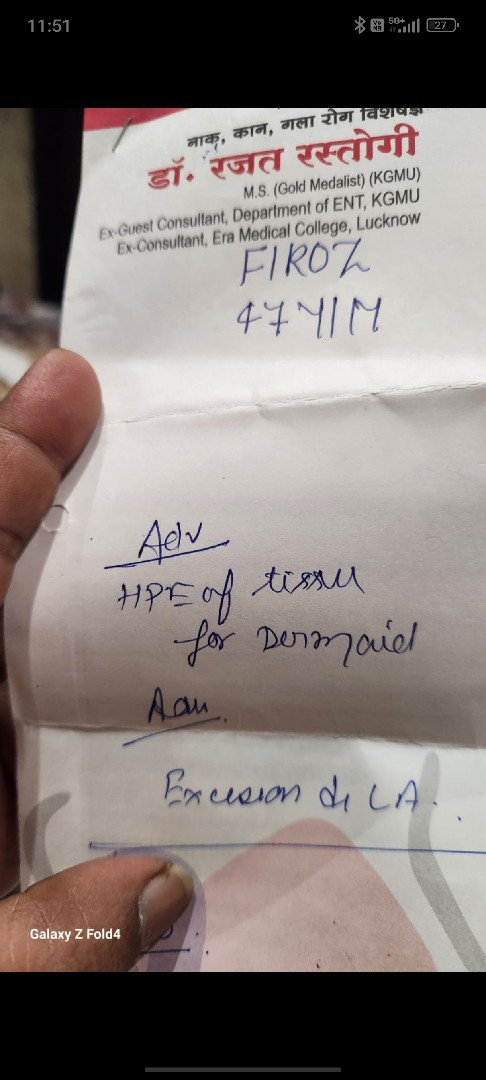 11:51
5G+
27
नाक, कान, गला रोग विशेषज्ञ
डॉ. रजत रस्तोगी
M.S. (Gold Medalist) (KGMU)
Ex-Guest Consultant, Department of ENT, KGMU
Ex-Consultant, Era Medical College, Lucknow
FIROZ
47Y/M
Adv
HPE of tissu
for Dermoid
Excision LA.
Galaxy Z Fold4